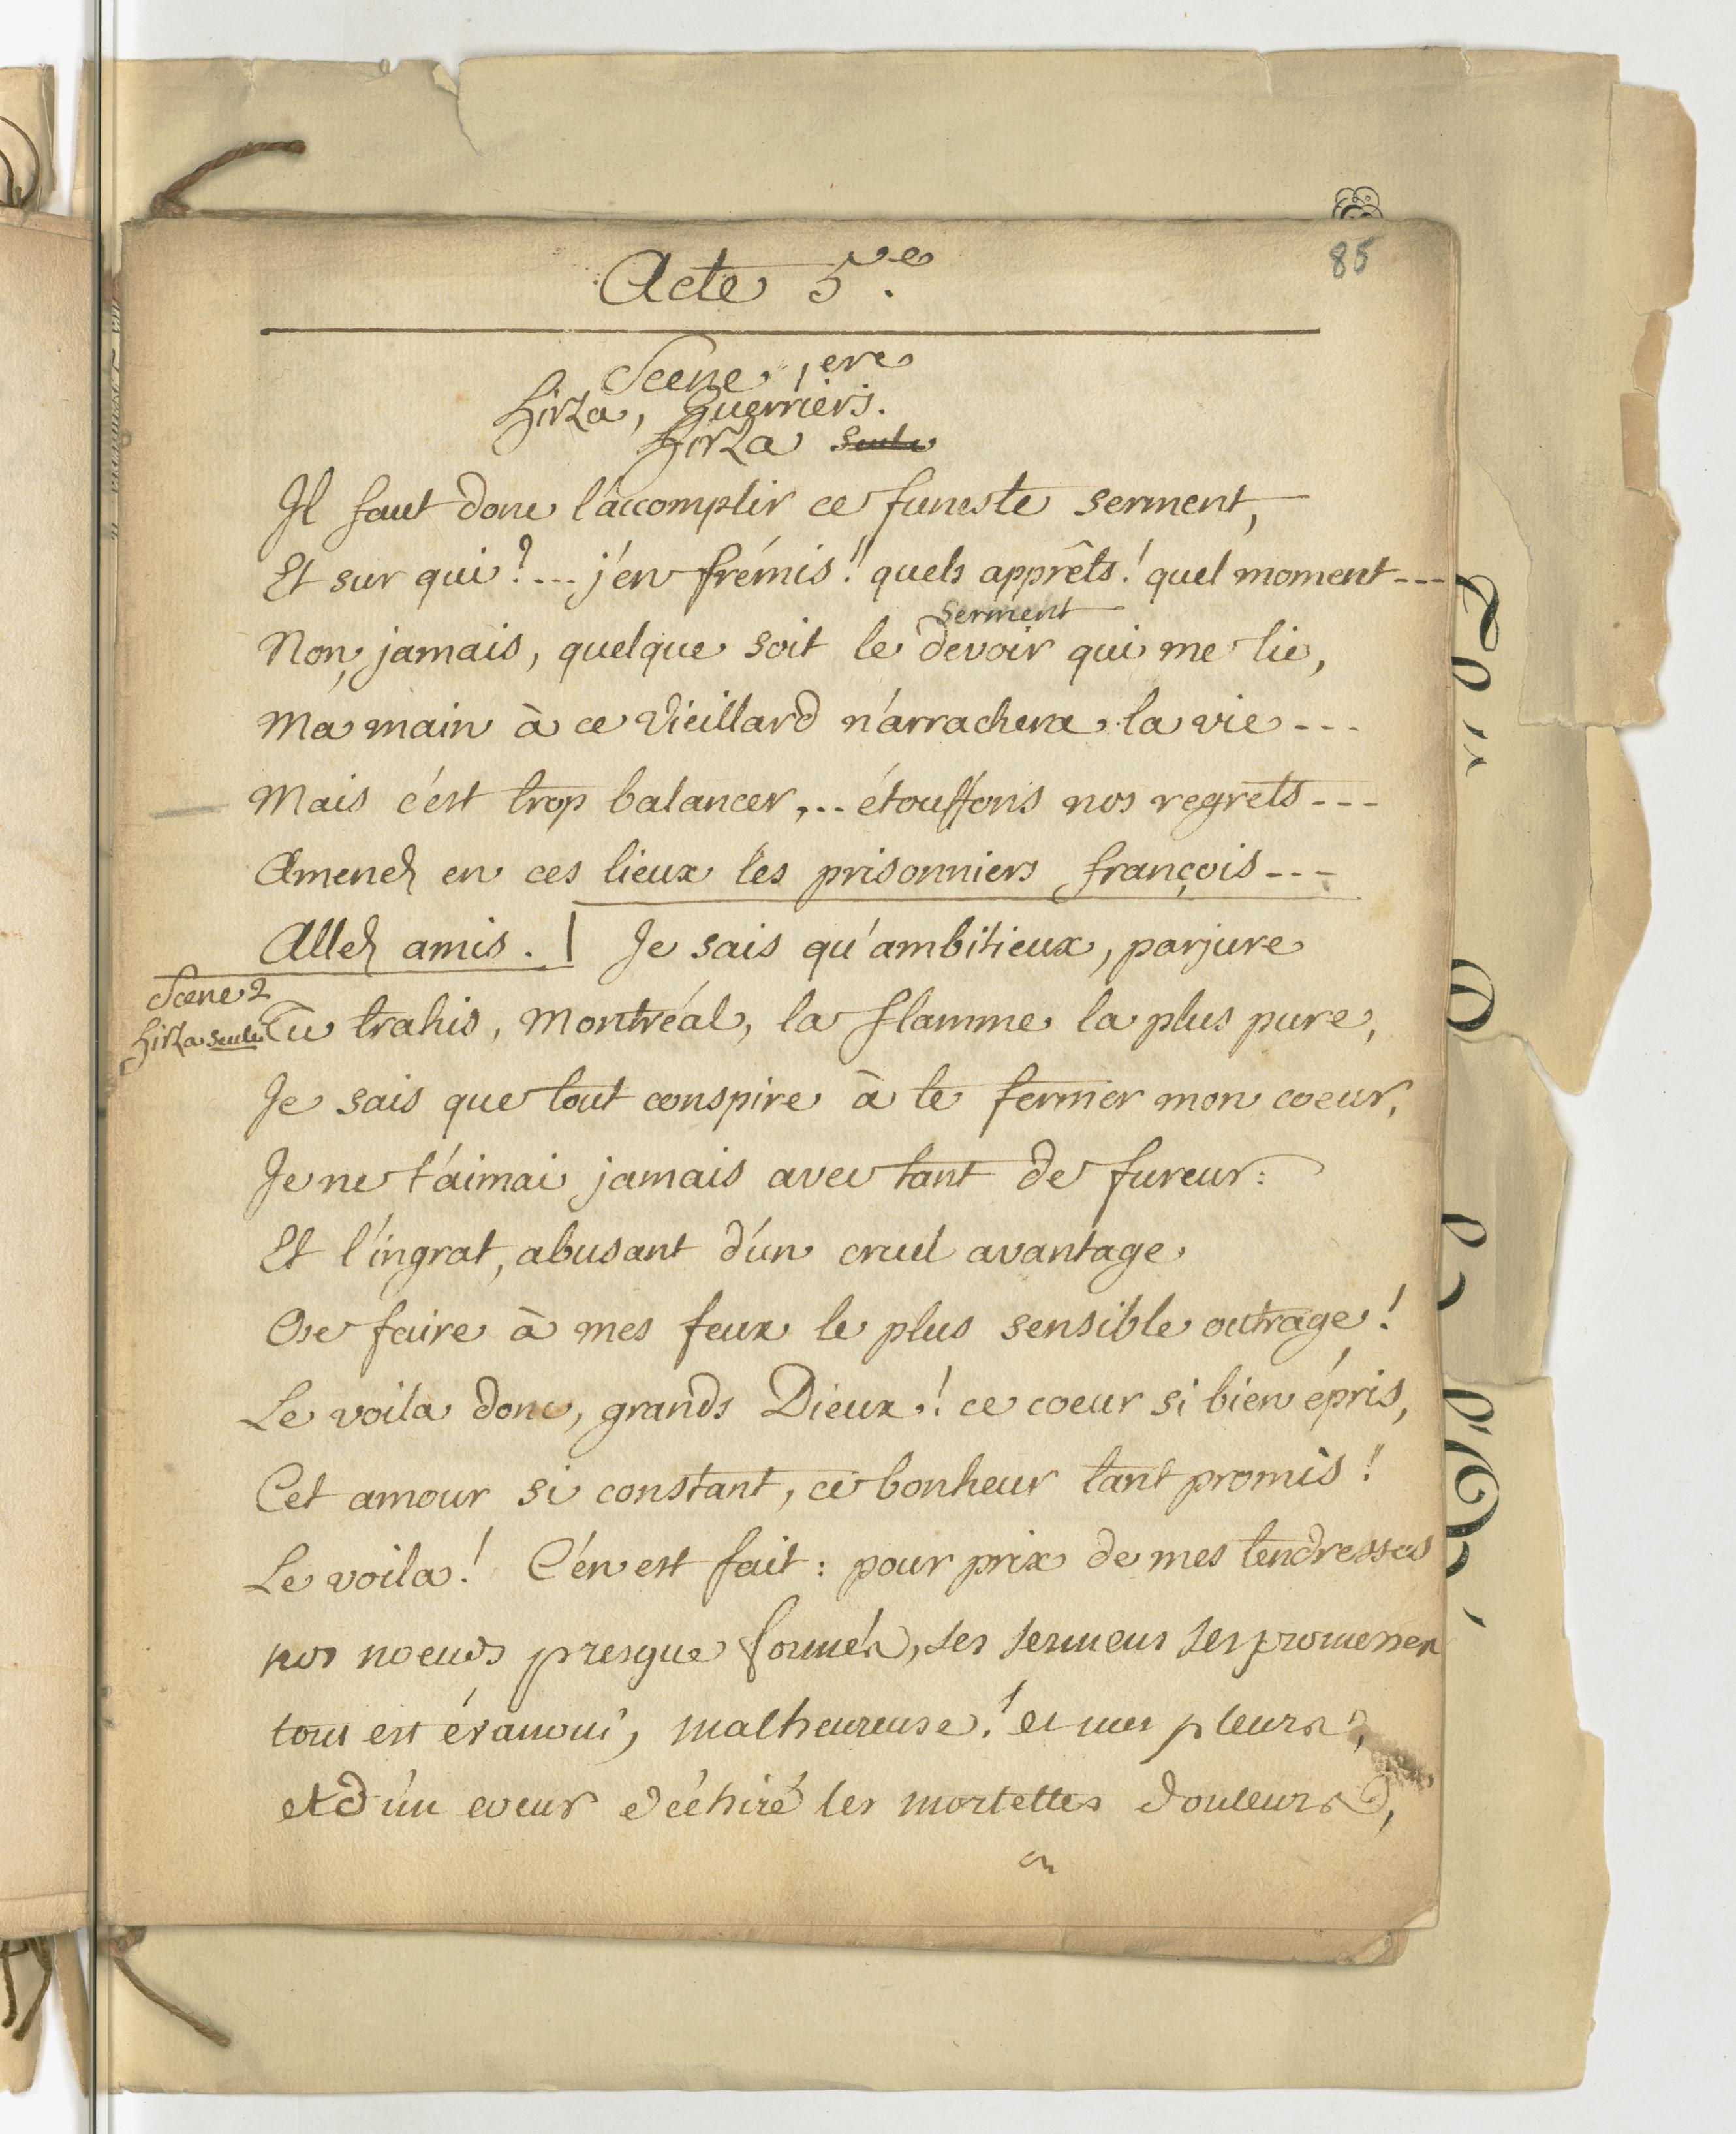 85
Acte 5.e
Scene 1ere
hirza, guerriers.
hirza seule
Il faut donc l'accomplir ce funeste serment,
Et sur qui? ... j'en frémis! quels apprêts! quel moment ---
serment
Non, jamais, quelque soit le devoir qui me lie,
Ma main à ce vieillard n'arrachera la vie ---
Mais c'est trop balancer, ... étouffons nos regrets ---
Amenez en ces lieux les prisonniers françois ---
Allez amis. | Je sais qu'ambitieux, parjure
Scene 2
hirza seule
Tu trahis, Montréal, la flamme la plus pure,
Je sais que tout conspire à te fermer mon coeur,
Je ne t'aimai jamais avec tant de fureur:
Et l'ingrat, abusant d'un cruel avantage
Ose faire à mes feux le plus sensible outrage!
Le voila donc, grands Dieux! ce coeur si bien épris,
Cet amour si constant, ce bonheur tant promis!
Le voila! C'en est fait: pour prix de mes tendresses
nos noeuds presque formés, ses sermens ses promesses
tout est évanoui, malheureuse! et mes pleurs,
et d'un coeur déchiré les mortelles douleurs,